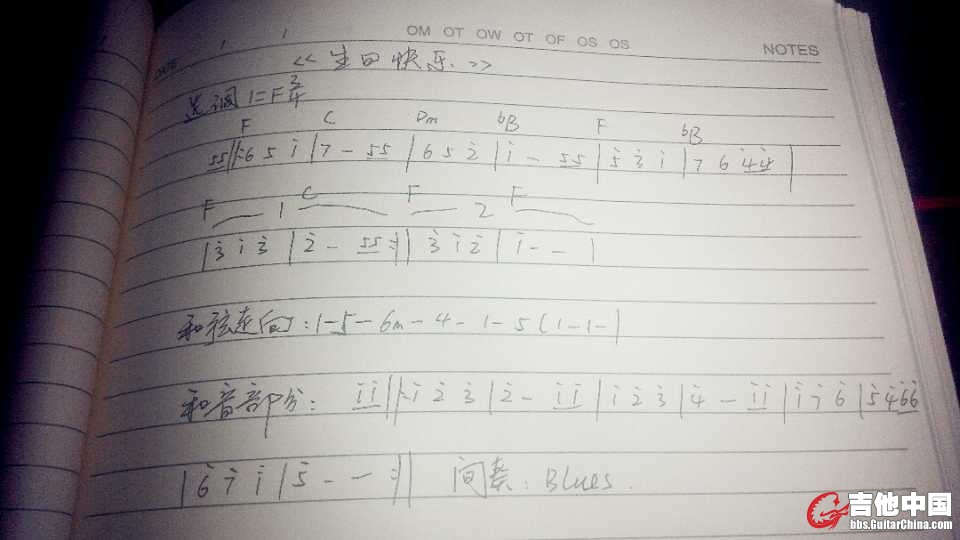 OM OT OW OT OF OS OS
NOTES
DATE
<< 生日快乐. >>
选调 1=F 3/4
F C Dm bB F bB
55||:6 5 i |7 - 55 |6 5 2̇ |i - 55 |5̇ 3̇ i |7 6 4̇4̇ |
F 1 C F 2 F
|3̇ i 3̇ |2̇ - 55 :|| 3̇ i 2̇ | i - - |
和弦走向: 1-5-6m-4-1-5(1-1-|
和音部分: i i ||: i 2̇ 3̇ |2̇ - i i | i 2̇ 3̇ |4̇ - i i | i 7̇ 6̇ |5̇ 4̇ 6̇6̇
|6̇ 7̇ i |5̇ - - :|| 间奏: Blues.
吉他中国
bbs.GuitarChina.com